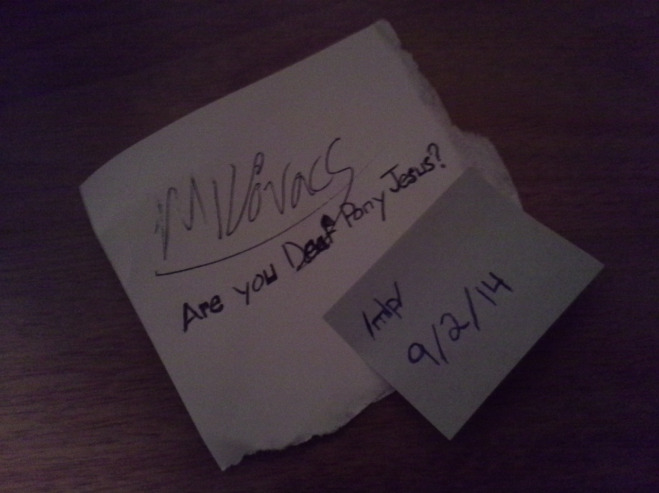 MKovacs
Are you Deaf Pony Jesus?
/mlp/
9/2/14